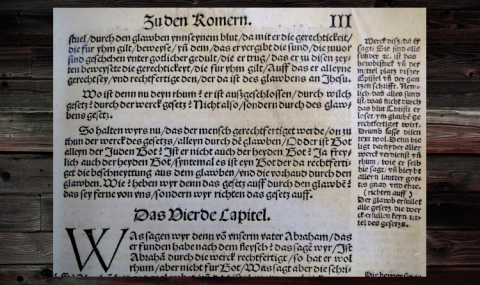 Zu den Romern. III
stuel/durch den glawben ynn seynem blut/da mit er die gerechtickeit/
die fur yhm gilt/beweyse/yn dem/das er vergibt die sund/die zuuor
sind geschehen vnter gotlicher gedult/die er trug/das er zu disen zey-
ten beweysete die gerechtickeyt/die fur yhm gilt/Auff das er alleyne
gerecht sey/vnd rechtfertige den/der da ist des glawbens an Jhesu.
Wo ist denn nu deyn rhum? er ist außgeschlossen/durch wilch
gesetz? durch der werck gesetz? Nicht also/sondern durch des glaw-
bens gesetz.
So halten wyrs nu/das der mensch gerechtfertiget werde/on zu
thun der werck des gesetzs/alleyn durch dē glawben/Odder ist Got
alleyn der Juden Got? Ist er nicht auch der heyden Got? Ja freylich
auch der heyden Got/syntemal es ist eyn Got der da rechtferti-
get die beschneyttung aus dem glawben/vnd die vorhaud durch den
glawben. Wie? heben wyr denn das gesetz auff durch den glawbē?
das sey ferne von vns/sondern wyr richten das gesetz auff.
Das Vierde Capitel.
WAs sagen wyr denn vō vnserm vater Abraham/das
er funden habe nach dem fleysch? das sagē wyr/Ist
Abrahā durch die werck rechtfertiget/so hat er wol
rhum/aber nicht fur Got/Was sagt aber die schri-
Merck diß/da er
sagt/Sie sind alle
sunder &c. ist das
hewbtstuck vñ der
mittel platz disser
Epistel vñ der gan
tzen schrifft. Nem-
lich/das alles sund
ist/was nicht durch
das blut Christi er
loset ym glawbē ge
rechtfertiget wirt.
Drumb fasse disen
text wol. Denn hie
ligt darnyder aller
werck verdienst vñ
rhum/wie er selb
hie sagt/vñ bleybt
alleyn lautter gots
gnad vnd ehre.
(richten auff)
Der glawb erfullet
alle gesetz/die wer
ck erfullen keyn tit-
tel des gesetzs.